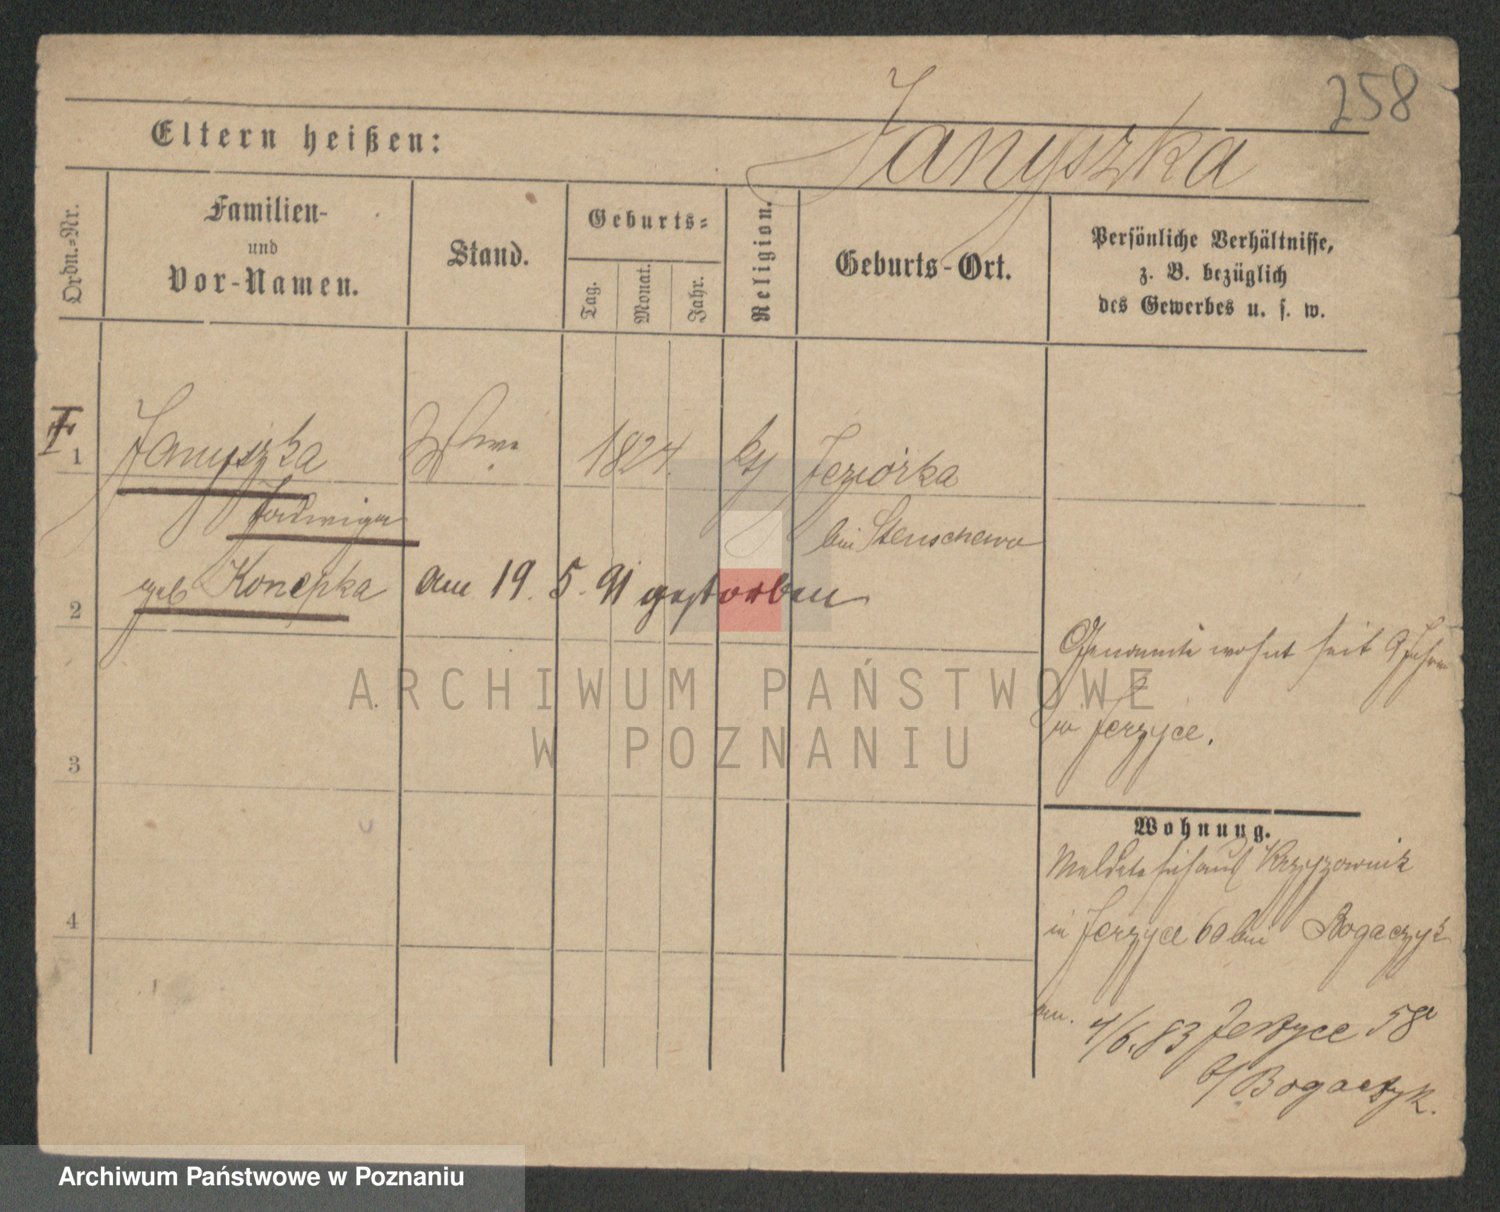 258
Eltern heißen: Janyszka
Ordn.-Nr.
Familien-
und
Vor-Namen.
Stand.
Geburts-
Tag.
Monat.
Jahr.
Religion.
Geburts-Ort.
Persönliche Verhältnisse,
z. B. bezüglich
des Gewerbes u. s. w.
1 Janyszka Wwe 1824 kt Jeziórka
Jadwiga bei Stenschewo
2 geb Konepka am 19. 5. 91 gestorben
Genannte wohnt seit 9 Jahren
in Jerzyce.
3
Wohnung.
Meldete sich aus Krzyzownik
4 in Jerzyce 60 bei Bogaczyk
an. 4/6.83 Jerzyce 58a
b/ Bogaczyk.
ARCHIWUM PAŃSTWOWE
W POZNANIU
Archiwum Państwowe w Poznaniu